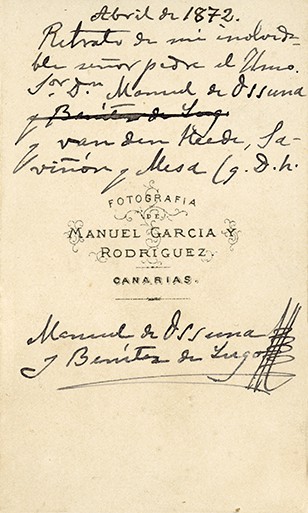 Abril de 1872.
Retrato de mi inolvida
ble señor padre el Ilmo.
Sor. Dn. Manuel de Ossuna
y Benítez de Lugo
y van den Heede, Sa-
viñón y Mesa (q. D. h.
FOTOGRAFIA
DE
MANUEL GARCIA Y
RODRIGUEZ.
CANARIAS.
Manuel de Ossuna
y Benítez de Lugo